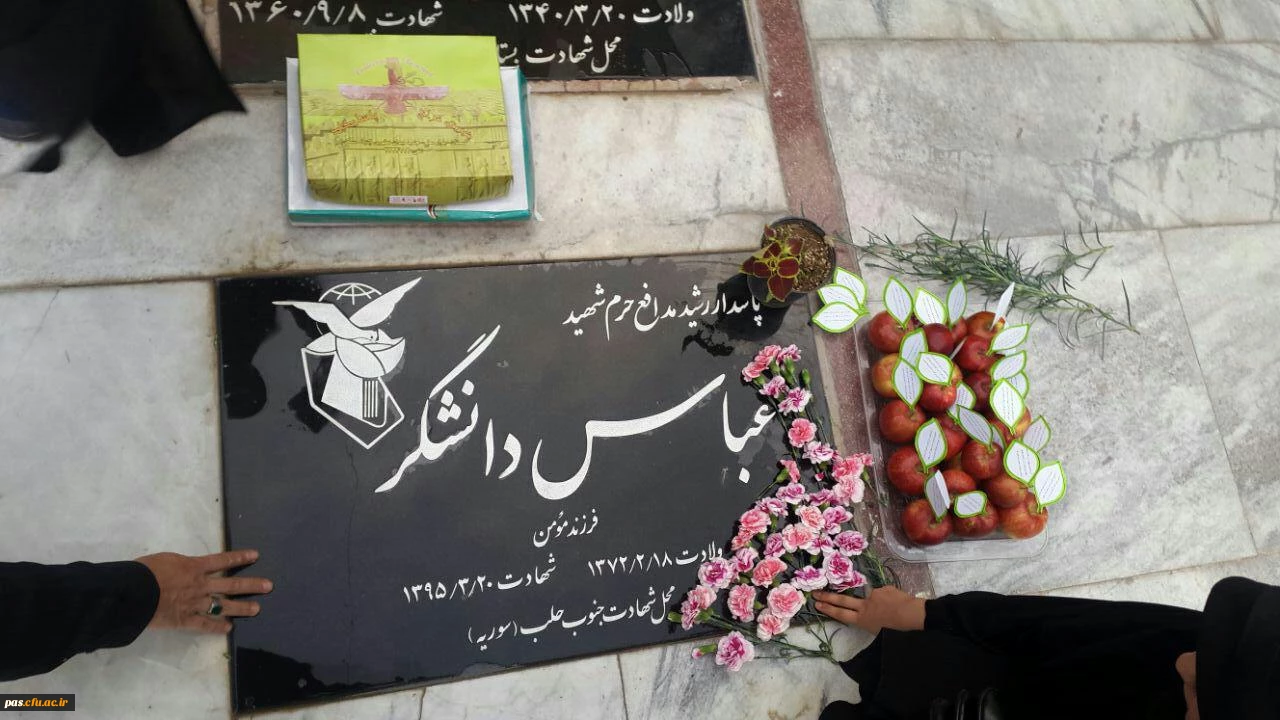 ولادت ۱۳۴۰/۳/۲۰ شهادت ۱۳۶۰/۹/۸
محل شهادت
پاسدار رشید مدافع حرم شهید
عباس دانشگر
فرزند مؤمن
ولادت ۱۳۷۲/۲/۱۸ شهادت ۱۳۹۵/۳/۲۰
محل شهادت جنوب حلب (سوریه)
pas.cfu.ac.ir